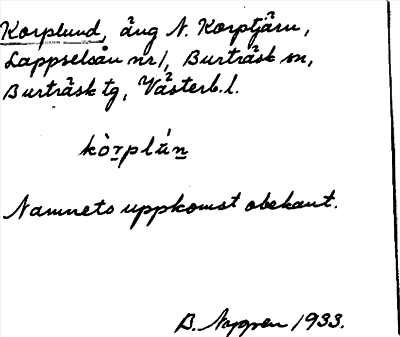 Korplund, äng N. Korptjärn,
Lappselsån nr 1, Burträsk sn,
Burträsk tg, Västerb. l.
kòrplún
Namnets uppkomst obekant.
B. 1933.